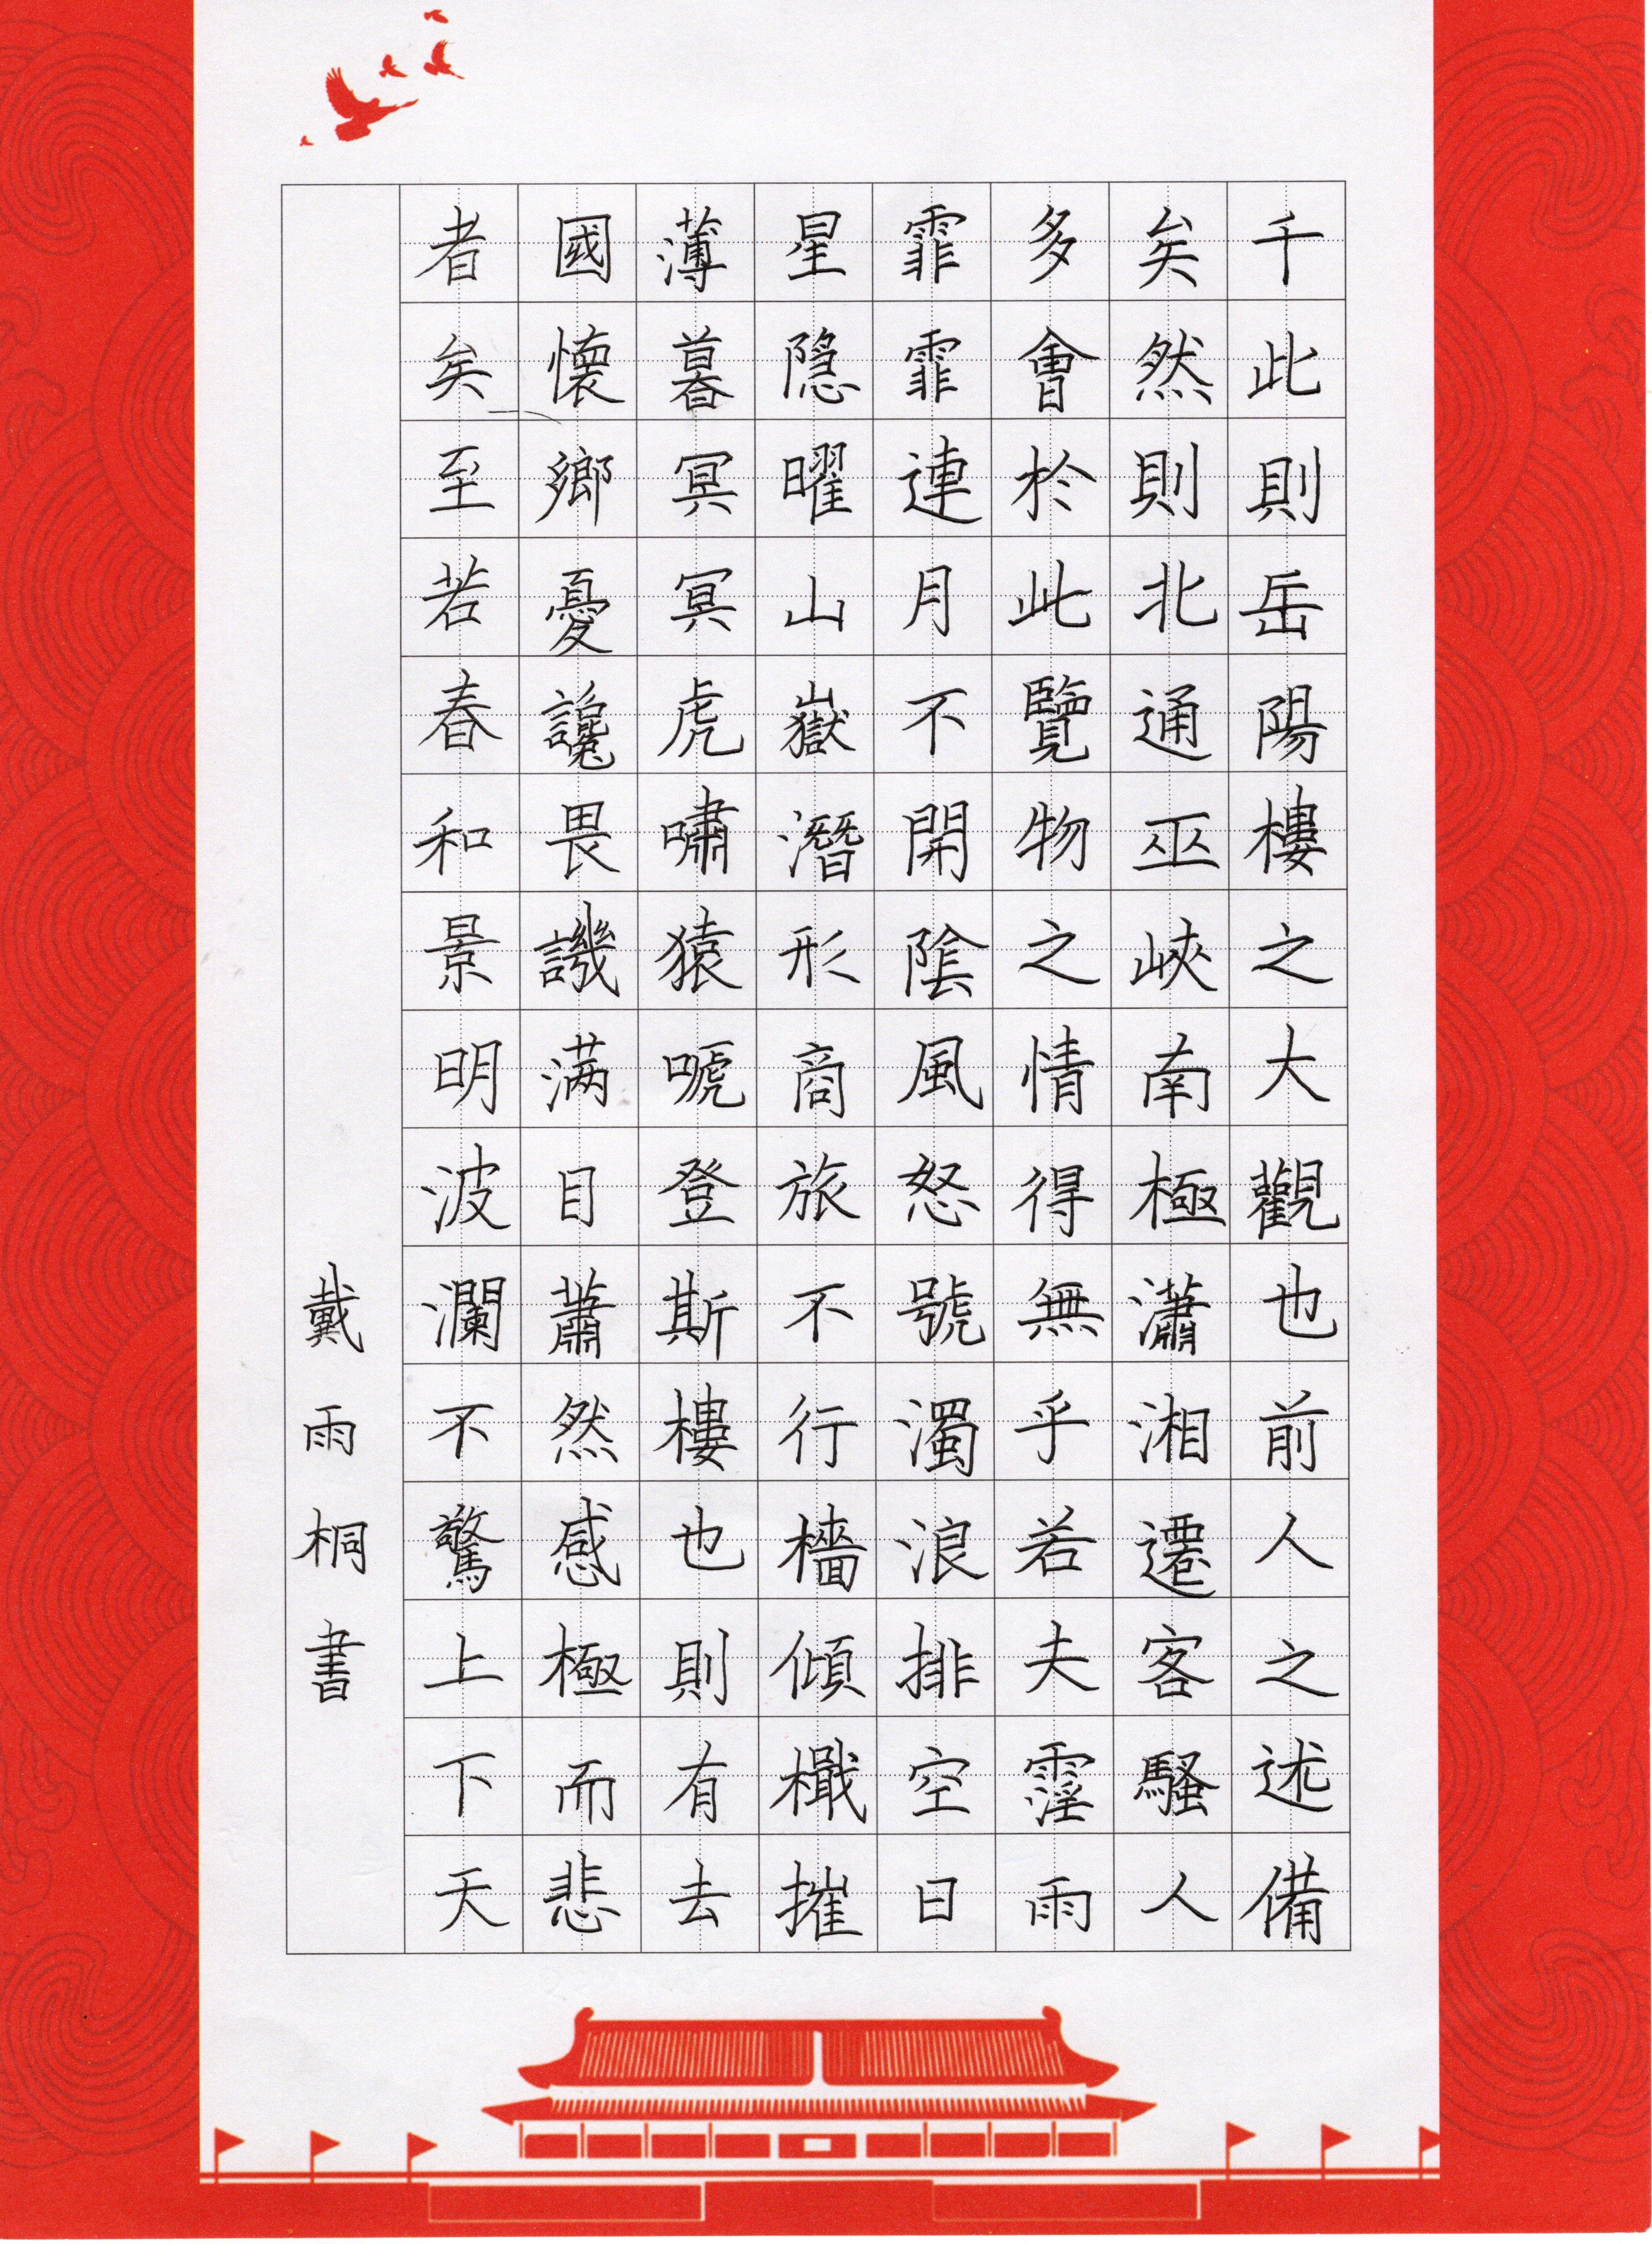 千此則岳陽樓之大觀也前人之述備
矣然則北通巫峽南極瀟湘遷客騷人
多會於此覽物之情得無乎若夫霪雨
霏霏連月不開陰風怒號濁浪排空日
星隐曜山嶽潛形商旅不行檣傾檝摧
薄暮冥冥虎嘯猿唬登斯樓也則有去
國懷鄉憂讒畏譏满目蕭然感極而悲
者矣至若春和景明波瀾不驚上下天
戴雨桐書